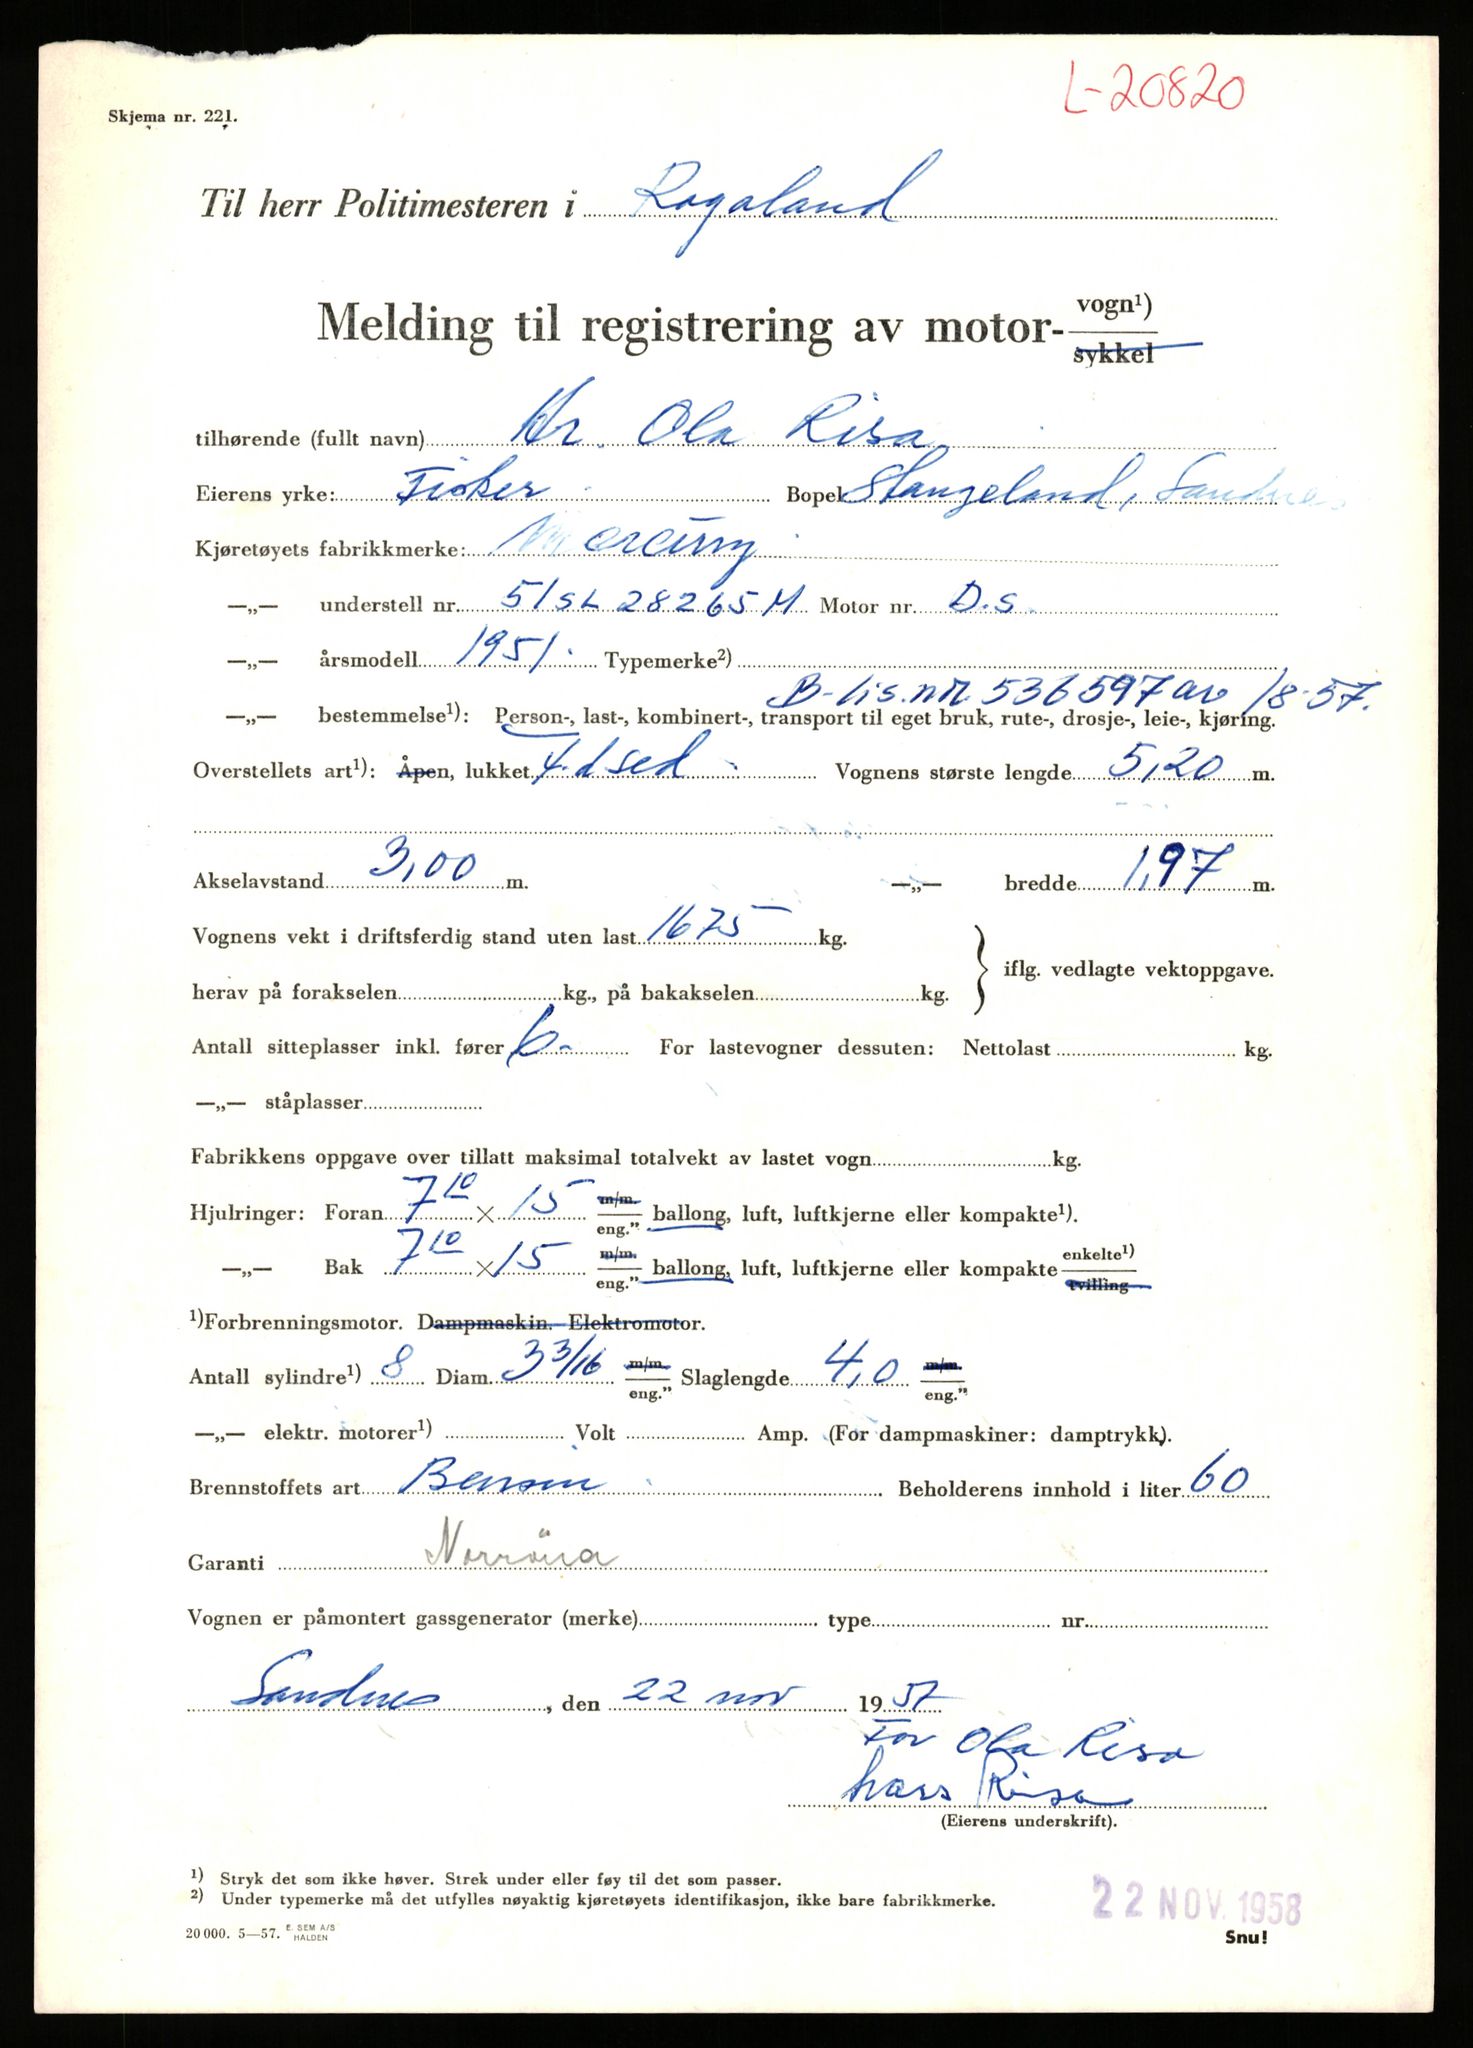 L-20820
Skjema nr. 221.
Til herr Politimesteren i Rogaland
Melding til registrering av motor- vogn¹)
sykkel
tilhørende (fullt navn) Hr. Ola Risa
Eierens yrke: Fisker Bopel Stangeland, Sandnes
Kjøretøyets fabrikkmerke: Mercury
—„— understell nr. 51SL 28265 M Motor nr. D.s.
—„— årsmodell 1951. Typemerke²)
B-lis.nr. 536597 av /8-57.
—„— bestemmelse¹): Person-, last-, kombinert-, transport til eget bruk, rute-, drosje-, leie-, kjøring.
Overstellets art¹): Åpen, lukket 4.d sed Vognens største lengde 5,20 m.
Akselavstand 3,00 m. —„— bredde 1,97 m.
Vognens vekt i driftsferdig stand uten last 1675 kg.
iflg. vedlagte vektoppgave.
herav på forakselen kg., på bakakselen kg.
Antall sitteplasser inkl. fører 6- For lastevogner dessuten: Nettolast kg.
—„— ståplasser
Fabrikkens oppgave over tillatt maksimal totalvekt av lastet vogn kg.
Hjulringer: Foran 7¹⁰ × 15 m/m. eng." ballong, luft, luftkjerne eller kompakte¹).
—„— Bak 7¹⁰ × 15 m/m. eng." ballong, luft, luftkjerne eller kompakte enkelte¹) tvilling
¹)Forbrenningsmotor. Dampmaskin. Elektromotor.
Antall sylindre¹) 8 Diam. 3 3/16 m/m. eng." Slaglengde 4,0 m/m. eng."
—„— elektr. motorer¹) Volt Amp. (For dampmaskiner: damptrykk).
Brennstoffets art Bensin Beholderens innhold i liter 60
Garanti Norröna
Vognen er påmontert gassgenerator (merke) type nr.
Sandnes, den 22 nov 1957
For Ola Risa
Lars Risa
(Eierens underskrift).
¹) Stryk det som ikke høver. Strek under eller føy til det som passer.
²) Under typemerke må det utfylles nøyaktig kjøretøyets identifikasjon, ikke bare fabrikkmerke.
22 NOV. 1958
20 000. 5—57. E. SEM A/S HALDEN
Snu!